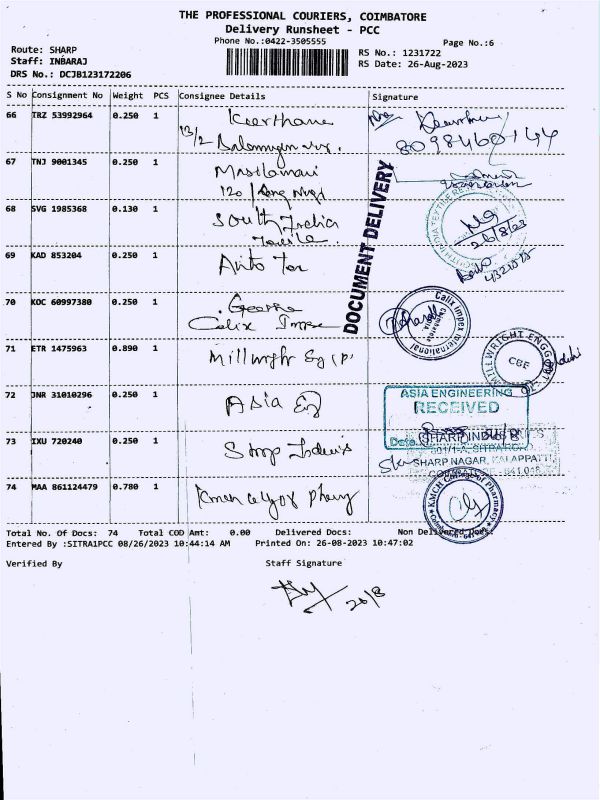 THE PROFESSIONAL COURIERS, COIMBATORE
Delivery Runsheet - PCC
Phone No.:0422-3505555
Page No.:6
Route: SHARP
Staff: INBARAJ
DRS No.: DCJB123172206
RS No.: 1231722
RS Date: 26-Aug-2023
S No Consignment No Weight PCS Consignee Details Signature
66 IRZ 53992964 0.250 1 Keerthana
13/2
8098460144
67 TNJ 9001345 0.250 1
120
68 SVG 1985368 0.130 1 South India
Textile
26/8/23
69 KAD 853204 0.250 1 Auto Tec
70 KOC 60997380 0.250 1 George
Calix Impex
Calix Impex International
71 ETR 1475963 0.890 1 Millwright Eg (P)
MILLWRIGHT ENGG
CBE
72 JNR 31010296 0.250 1 Asia Eg
ASIA ENGINEERING
RECEIVED
Date
73 IXU 720240 0.250 1
SHARP INDUSTRIES
SHARP NAGAR, KALAPPATTI
COIMBATORE - 641 048
74 MAA 861124479 0.780 1 Kmch College of Pharmacy
KMCH College of Pharmacy
DOCUMENT DELIVERY
Total No. Of Docs: 74 Total COD Amt: 0.00 Delivered Docs: Non Delivered Docs:
Entered By :SITRA1PCC 08/26/2023 10:44:14 AM Printed On: 26-08-2023 10:47:02
Verified By Staff Signature
26/8